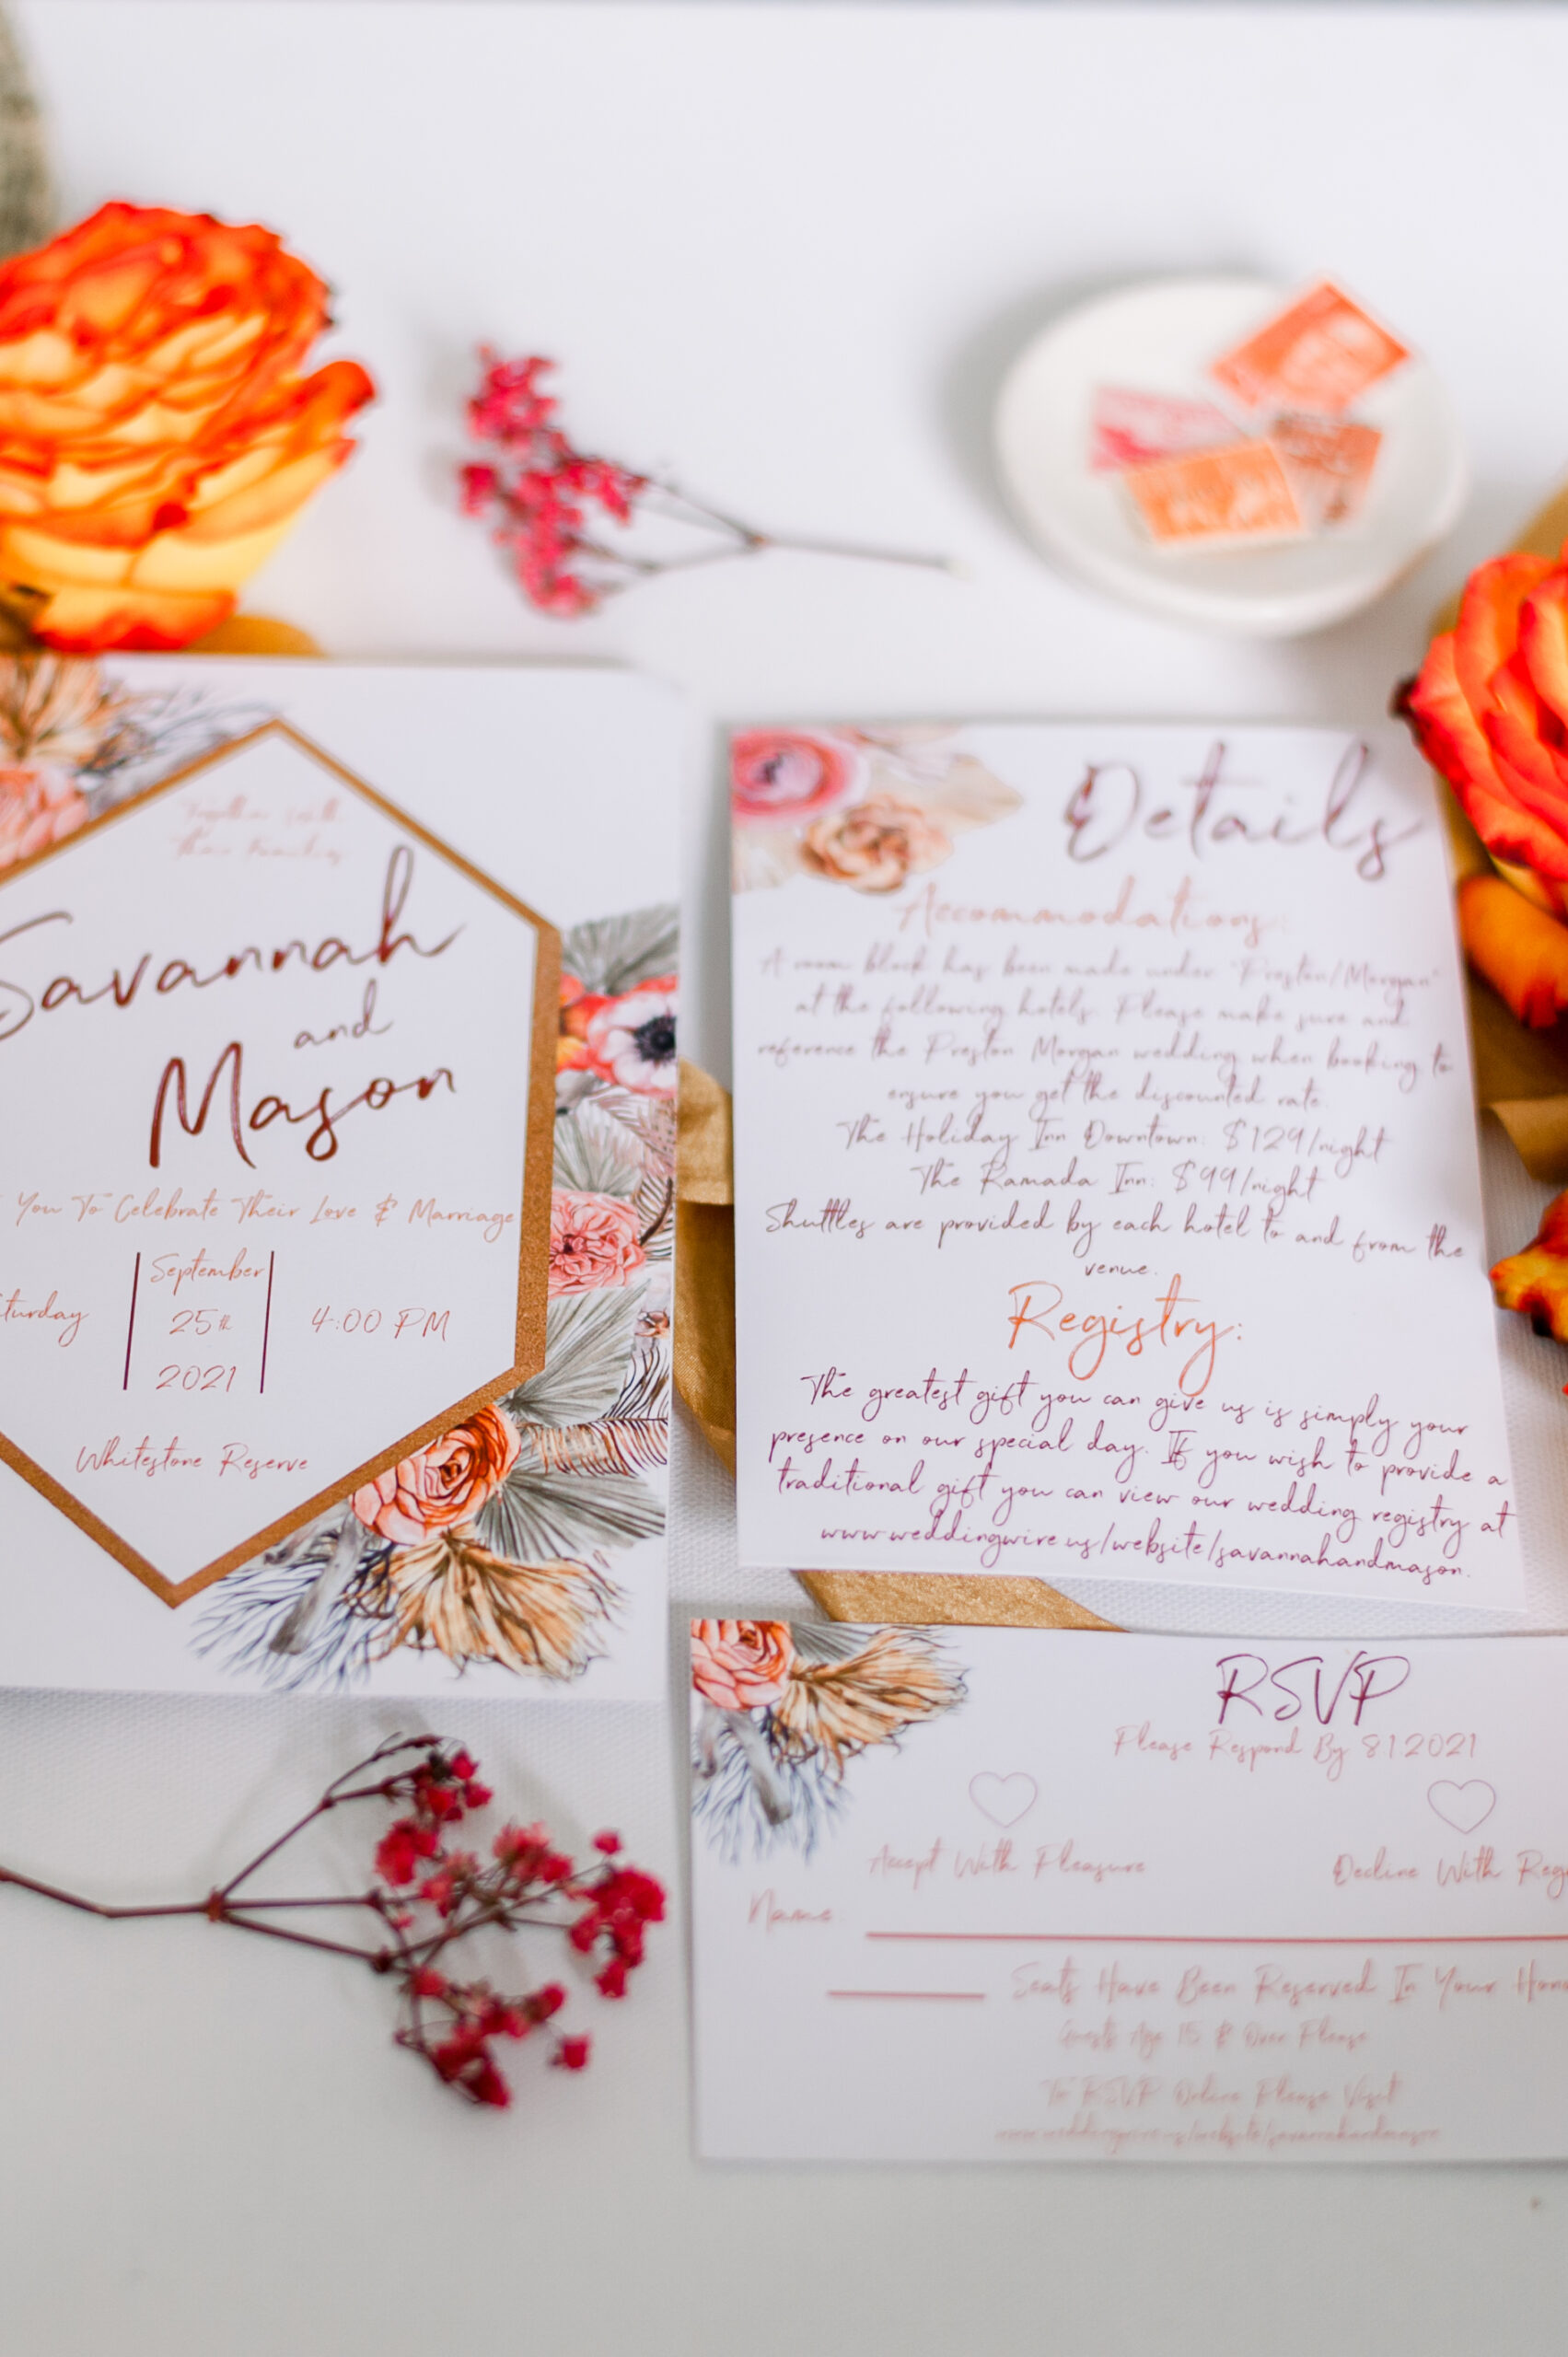 Together With
Their Families
Savannah
and
Mason
You To Celebrate Their Love & Marriage
September
turday
25th
4:00 PM
2021
Whitestone Reserve
Details
Accommodations:
A room block has been made under "Preston/Morgan"
at the following hotels. Please make sure and
reference the Preston Morgan wedding when booking to
ensure you get the discounted rate.
The Holiday Inn Downtown: $129/night
The Ramada Inn: $99/night
Shuttles are provided by each hotel to and from the
venue.
Registry:
The greatest gift you can give us is simply your
presence on our special day. If you wish to provide a
traditional gift you can view our wedding registry at
www.weddingwire.us/website/savannahandmason.
RSVP
Please Respond By 8 1 2021
Accept With Pleasure
Decline With Reg
Name
Seats Have Been Reserved In Your Hono
Guests Age 15 & Over Please
To RSVP Online Please Visit
www.weddingwire.us/website/savannahandmason